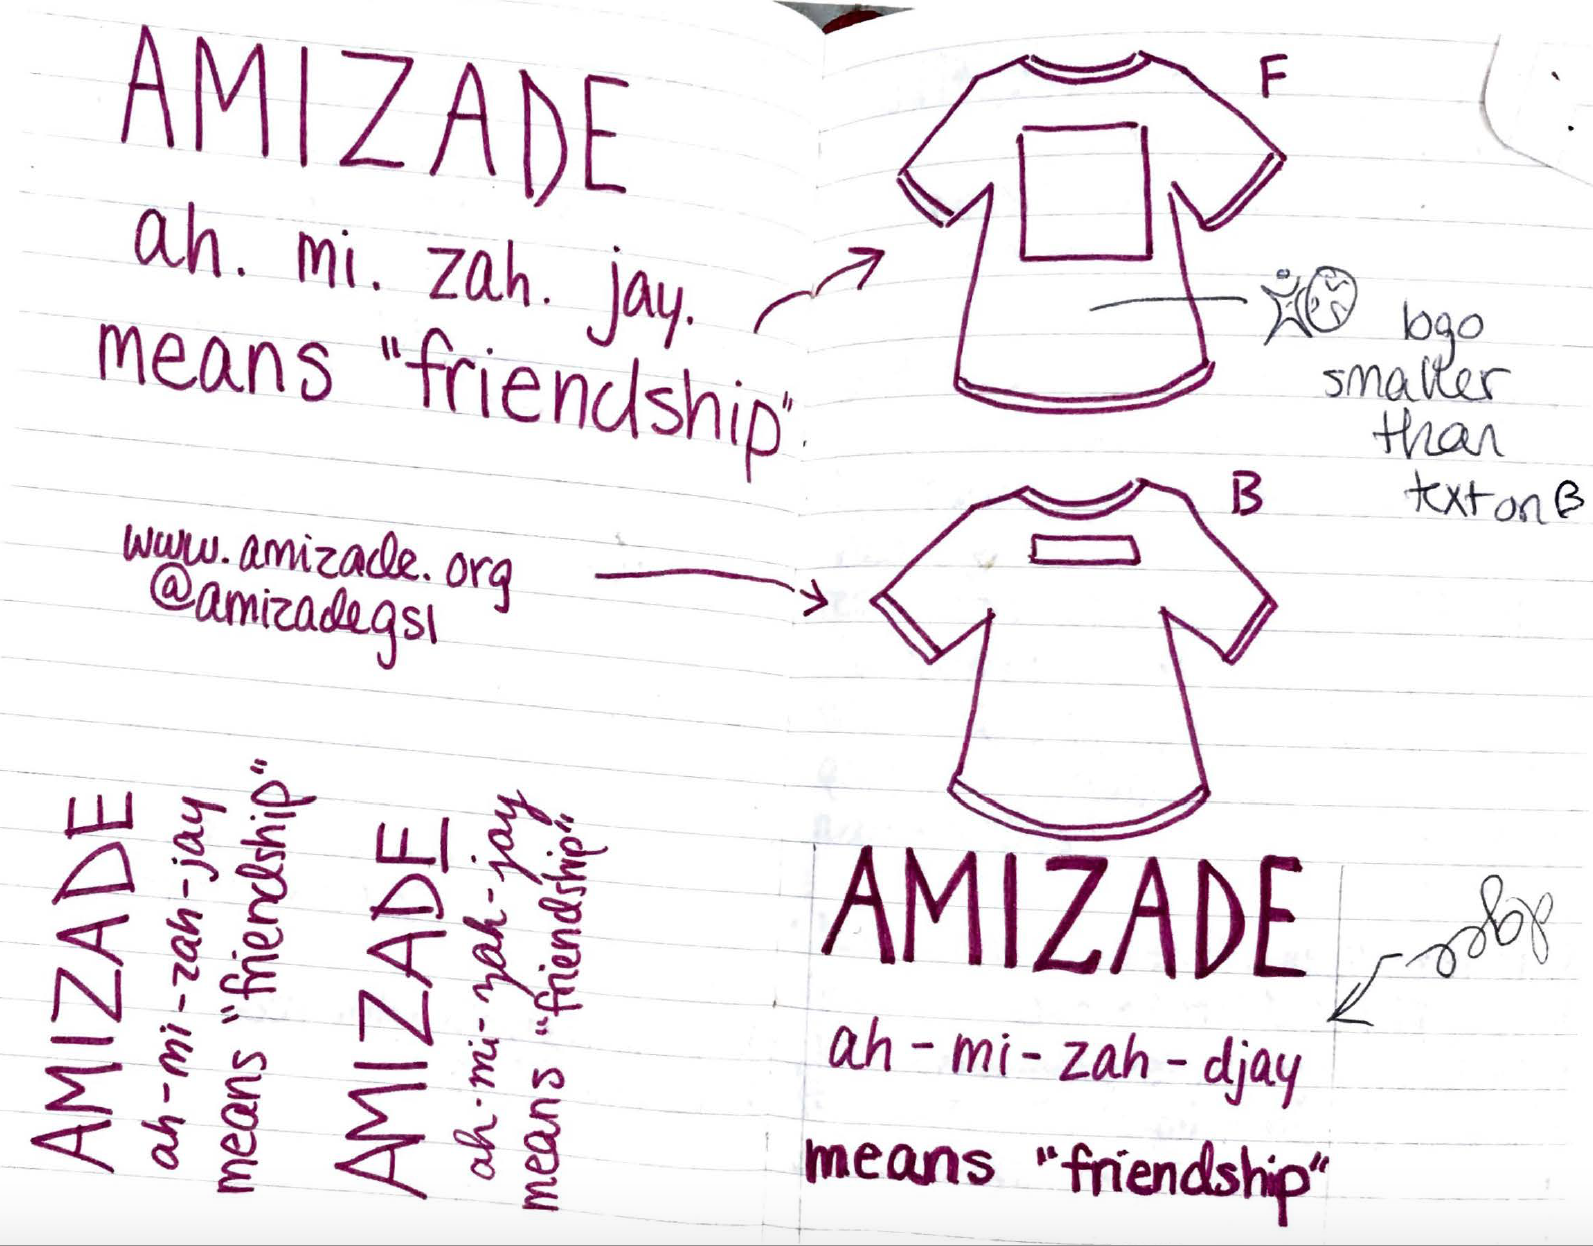 AMIZADE
ah. mi. zah. jay.
means "friendship".
www.amizade.org
@amizadegsl
F
logo
smaller
than
text on B
B
AMIZADE
ah-mi-zah-jay
means "friendship"
AMIZADE
ah-mi-zah-jay
means "friendship"
AMIZADE
ah-mi-zah-djay
means "friendship"